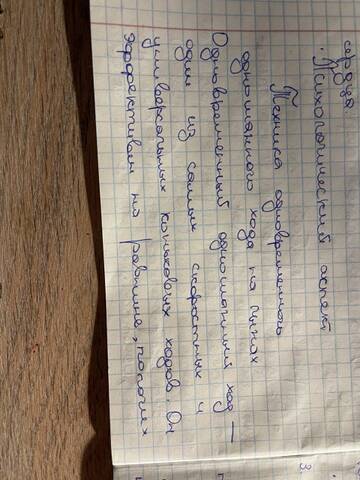 сердца.
• Психологический аспект
Техника одновременного
одношажного хода на лыжах
Одновременный одношажный ход –
один из самых скоростных и
универсальных коньковых ходов. Он
эффективен на равнине, пологих
3.